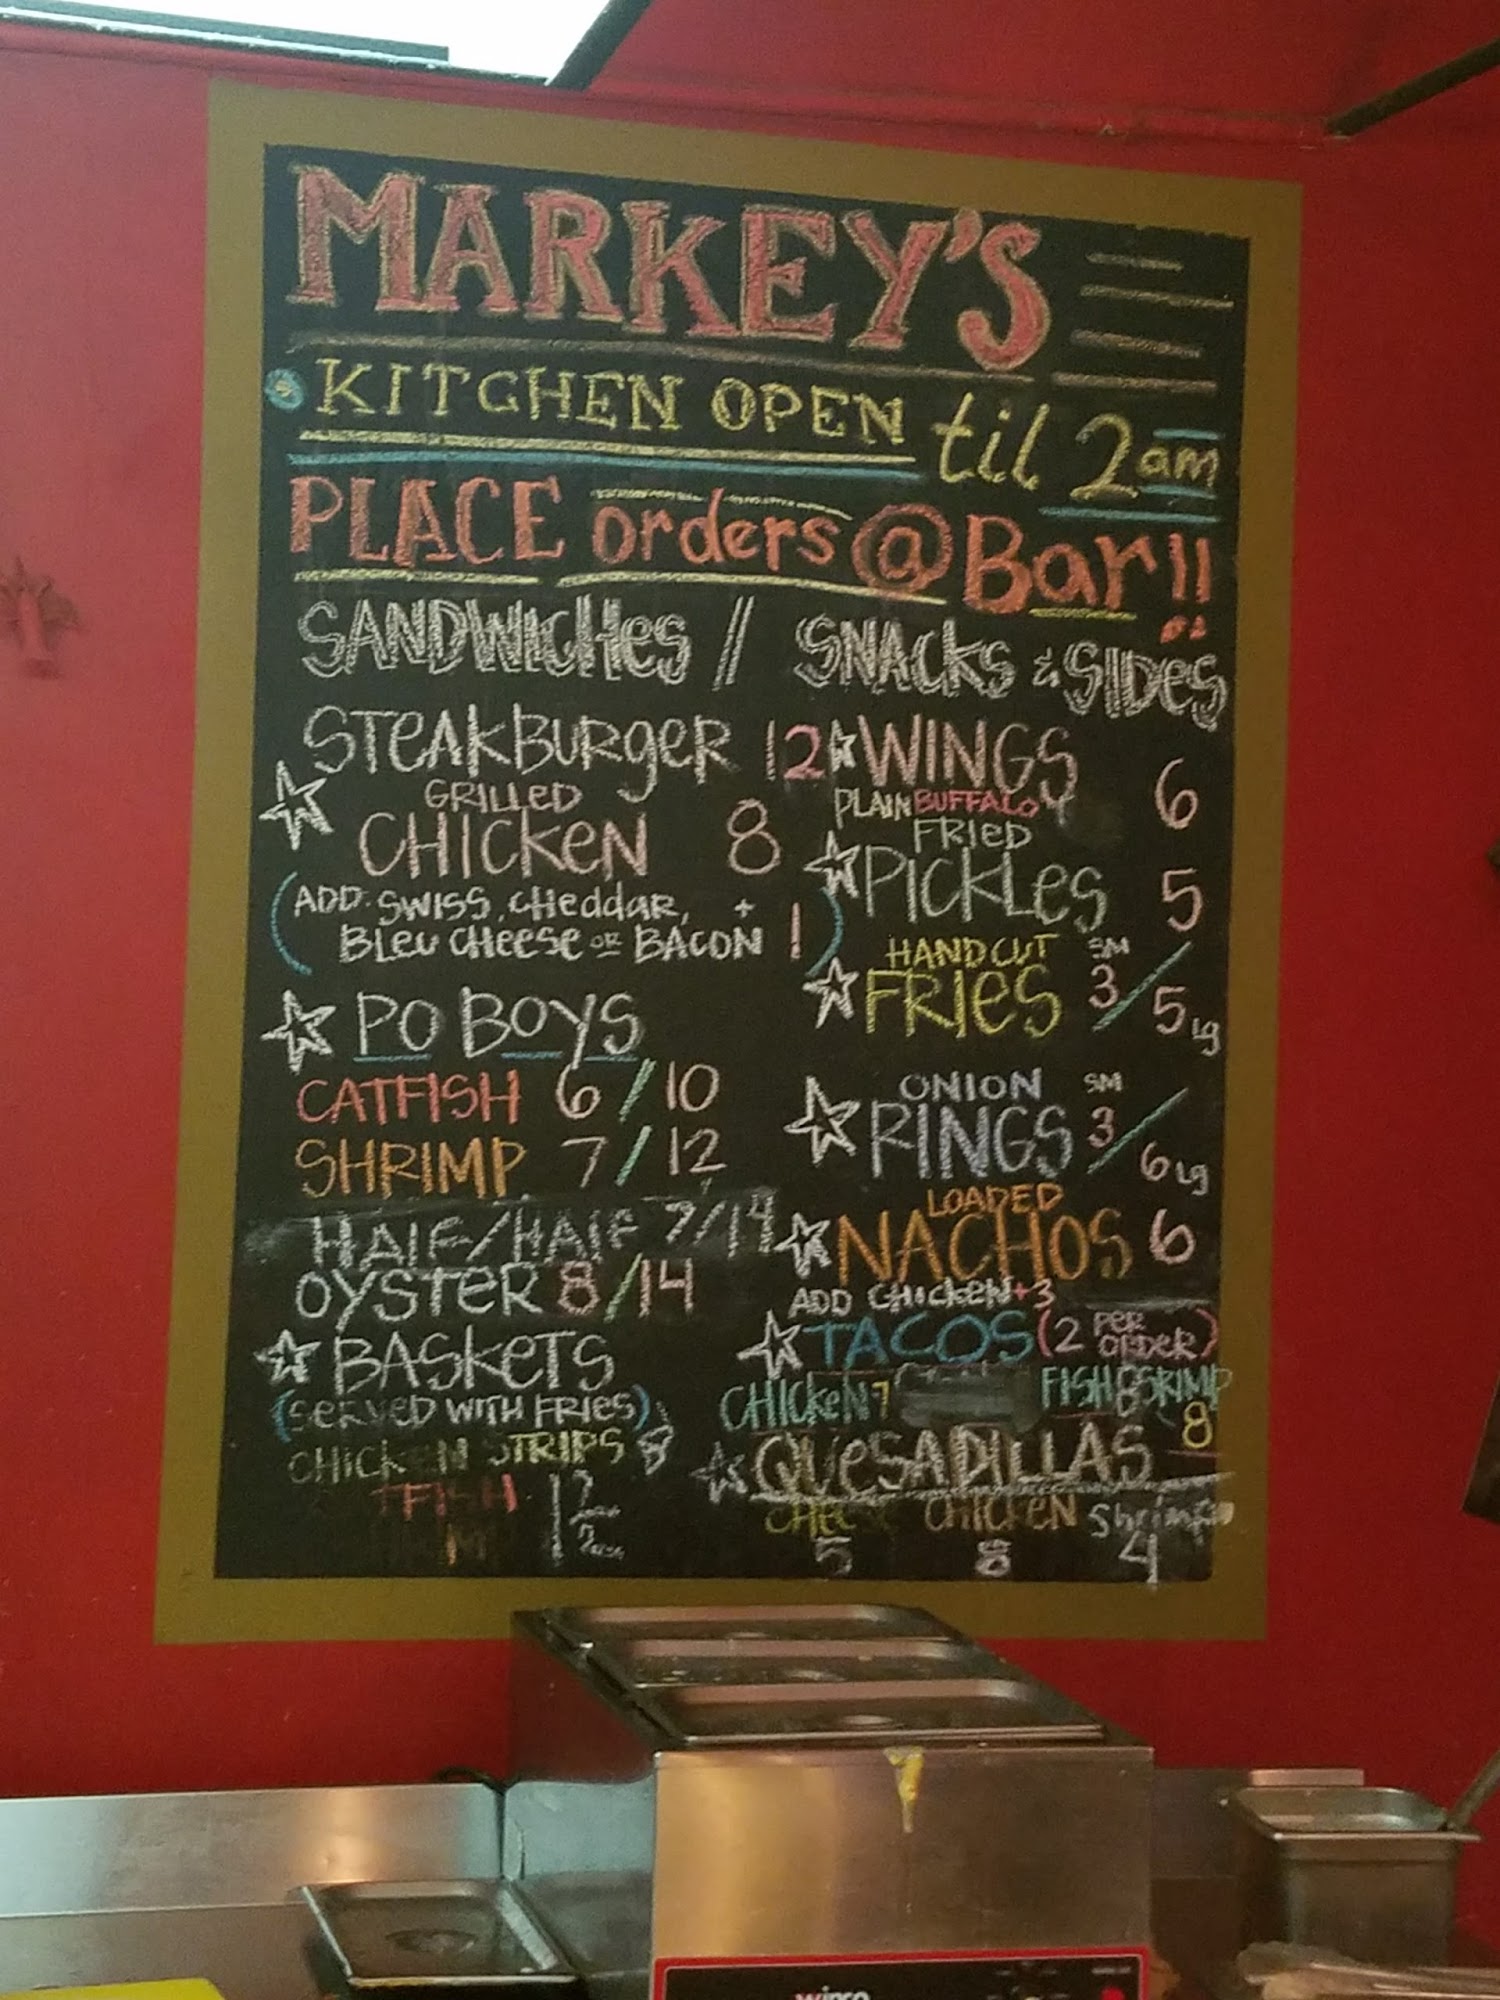 MARKEY'S
KITCHEN OPEN til 2am
PLACE orders @ Bar!!
SANDWICHES // SNACKS & SIDES
STEAKBURGER 12
GRILLED
CHICKEN 8
(ADD. SWISS, CHEDDAR, +
BLEU CHEESE OR BACON 1)
PO BOYS
CATFISH 6/10
SHRIMP 7/12
HALF/HALF 7/14
OYSTER 8/14
BASKETS
(SERVED WITH FRIES)
CHICKEN STRIPS 8
12
WINGS 6
PLAIN BUFFALO
FRIED
PICKLES 5
HANDCUT SM
FRIES 3/5 LG
ONION SM
RINGS 3/6 LG
LOADED
NACHOS 6
ADD CHICKEN +3
TACOS (2 PER ORDER)
CHICKEN 7 FISH 8 SRIMP 8
QUESADILLAS
CHEESE CHICKEN Shrimp
5 8 4
winco